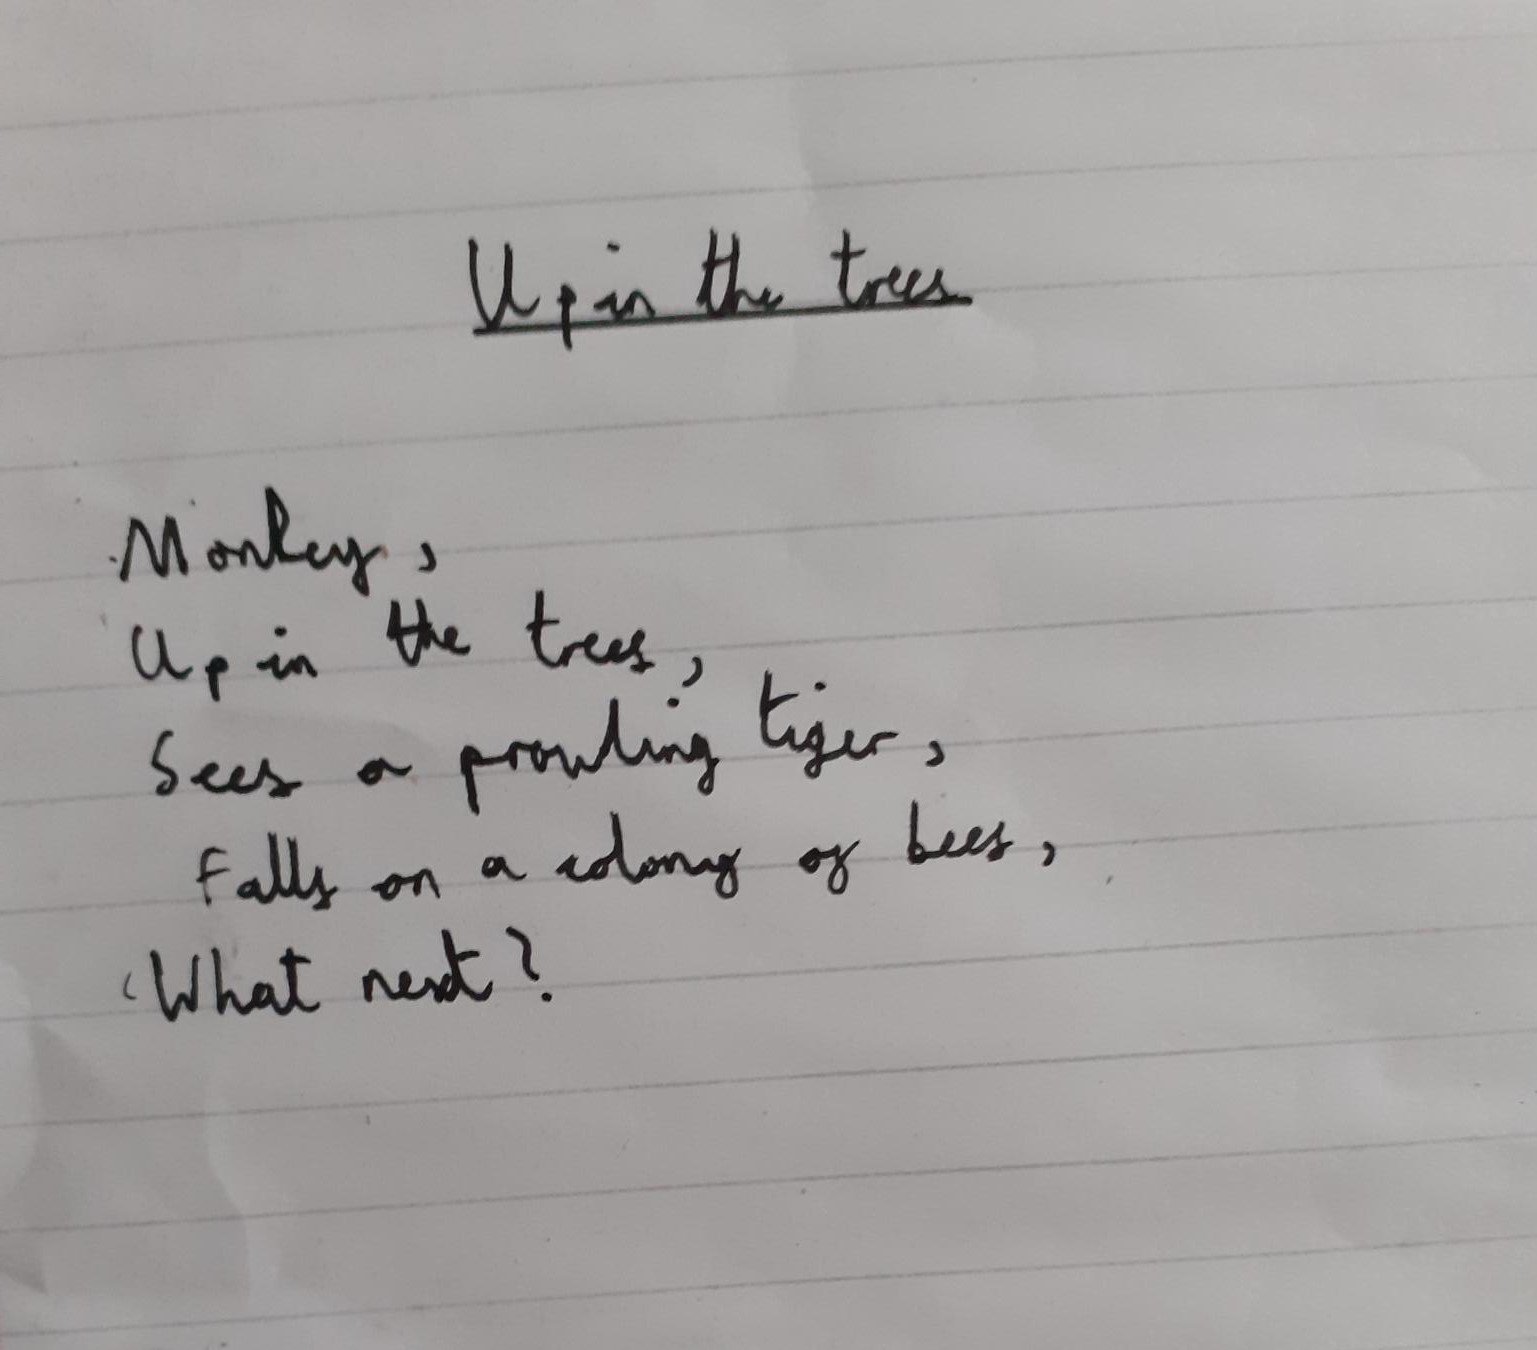 Up in the trees
Monkey,
Up in the trees,
Sees a prowling tiger,
Falls on a colony of bees,
What next?